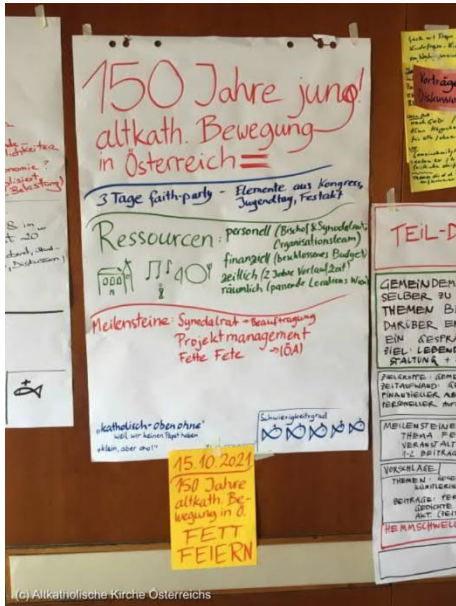 150 Jahre jung!
altkath. Bewegung
in Österreich
3 Tage faith-party - Elemente aus Kongress,
Jugendtag, Festakt
Ressourcen: personell (Bischof & Synodalrat;
Organisationsteam)
finanziell (beschlossenes Budget)
zeitlich (2 Jahre Vorlaufzeit)
räumlich (passende Locations Wien)
Meilensteine: Synodalrat - Beauftragung
Projektmanagement
Fette Fete
(ÖA)
"katholisch-oben ohne"
weil wir keinen Papst haben
"klein, aber oho!"
Schwierigkeitsgrad
15.10.2021
150 Jahre
altkath. Be-
wegung in Ö.
FETT
FEIERN
Vorträge
TEIL-
GEMEINDEM
SELBER ZU
THEMEN
DARÜBER
EIN GESPR
ZIEL: LEBEND
STALTUNG +
ZIELGRUPPE: GEME
ZEITAUFWAND:
FINANZIELLER
PERSONELLER
MEILENSTEINE
THEMA
VERANSTALT
1-2 BEITRÄG
VORSCHLÄGE
THEMEN:
BEITRÄGE:
GEDICHTE
HEMMSCHWELL
(c) Altkatholische Kirche Österreichs